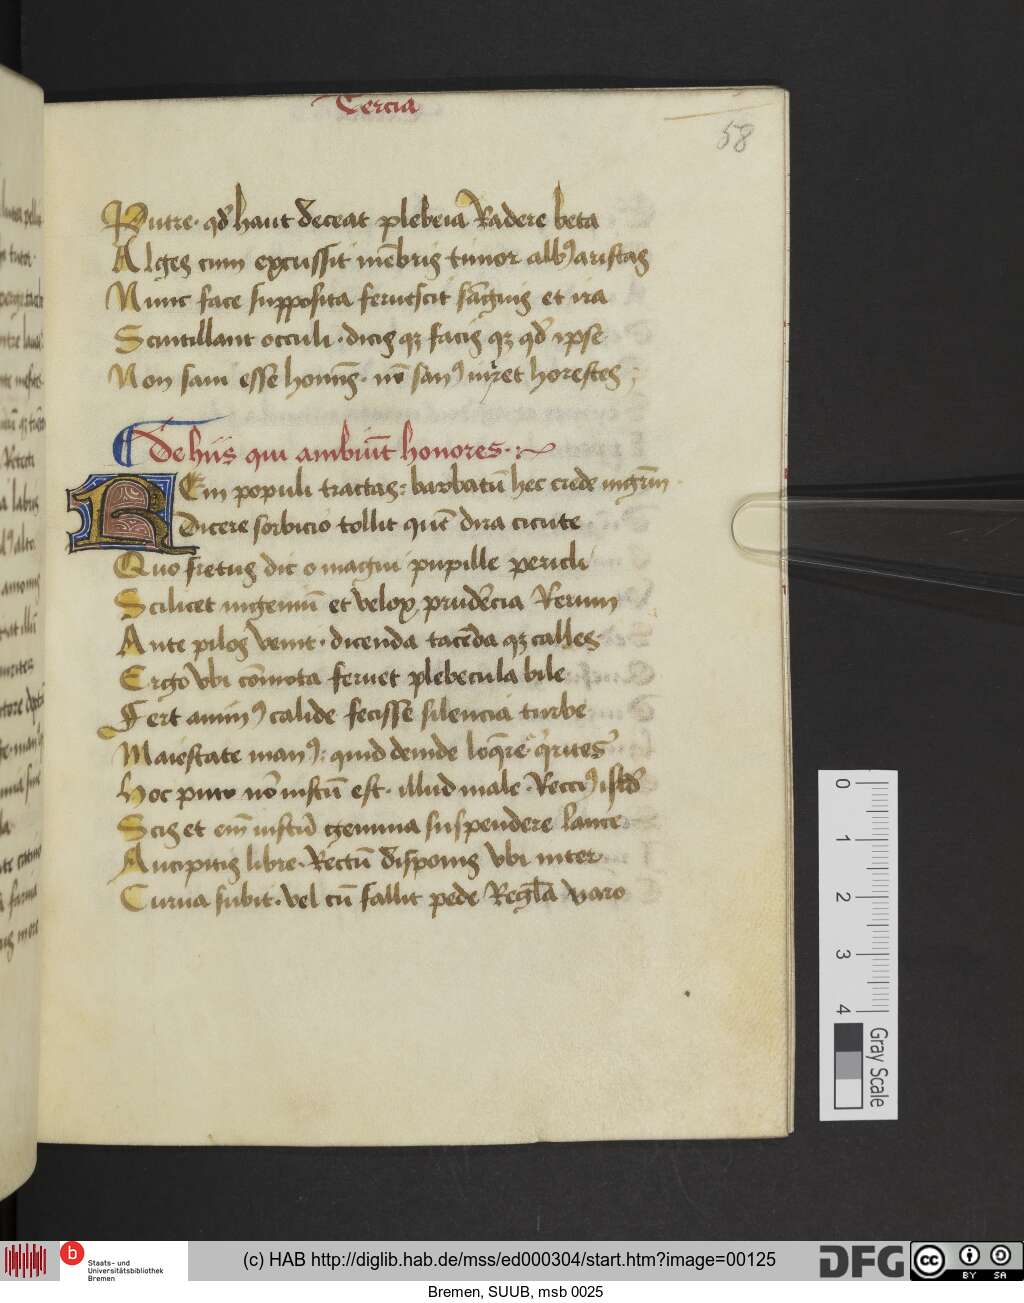 Tercia
58
Putre· qđ haut deceat plebeia Radere beta
Alges cum excussit mēbris timor albꝰ aristas
Nunc face supposita feruescit sāguis et ira
Scintillant occuli · dicis qꝫ facis qꝫ qđ ipse
Non sani esse hominis · nō sanꝰ iuret horestes ;
De hiis qui ambiūt honores ·:~
REm populi tractas: barbatū hec crede mgrm̄ ·
Dicere sorbicio tollit quē dira cicute
Quo fretus dic o magni pupille pericli
Scilicet ingeniū et velox prudēcia Rerum
Ante pilos venit · dicenda tacēda qꝫ calles·
Ergo vbi cōmota feruet plebecula bile
Fert animꝰ calide fecisse silencia turbe
Maiestate manꝰ: quid deinde loq̄re· q̇rites
Hoc puto nō iustū est · illud male · Recciꝰ istđ
Scis et em̄ iustū gemina suspendere lance
Ancipitis libre· Rectū disponis vbi inter
Curua subit · vel cū fallit pede Regl̄a varo
0
1
2
3
4
Gray Scale
b
Staats- und
Universitätsbibliothek
Bremen
(c) HAB http://diglib.hab.de/mss/ed000304/start.htm?image=00125
DFG
cc
BY SA
Bremen, SUUB, msb 0025